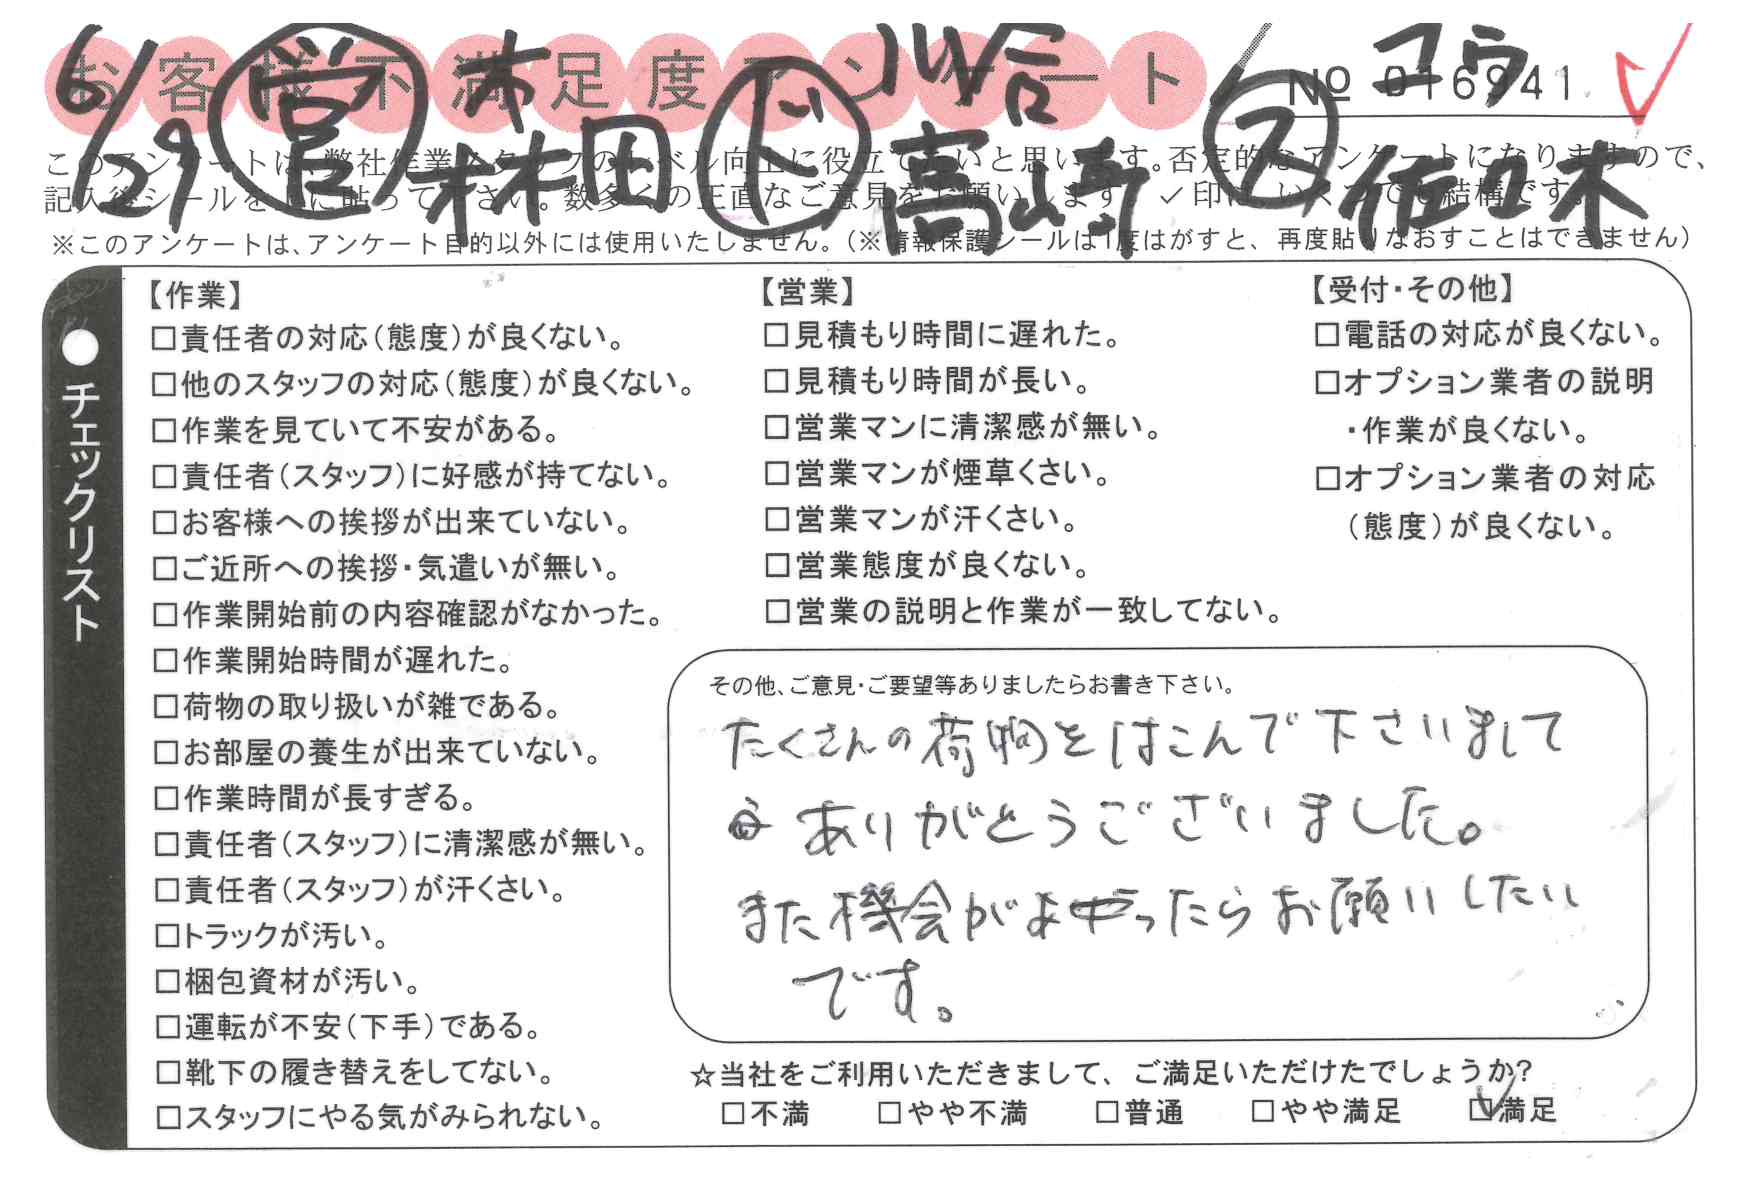 お客様不満足度アンケート
6/29 営 林田 ド 川合 高崎 ス コウ 佐々木
№ 016941
このアンケートは、弊社作業スタッフのレベル向上に役立てたいと思います。否定的なアンケートになりますので、
記入後シールを上に貼って下さい。数多くの正直なご意見をお願いします。✓印は、いくつでも結構です。
※このアンケートは、アンケート目的以外には使用いたしません。(※情報保護シールは1度はがすと、再度貼りなおすことはできません)
●チェックリスト
【作業】
□責任者の対応(態度)が良くない。
□他のスタッフの対応(態度)が良くない。
□作業を見ていて不安がある。
□責任者(スタッフ)に好感が持てない。
□お客様への挨拶が出来ていない。
□ご近所への挨拶・気遣いが無い。
□作業開始前の内容確認がなかった。
□作業開始時間が遅れた。
□荷物の取り扱いが雑である。
□お部屋の養生が出来ていない。
□作業時間が長すぎる。
□責任者(スタッフ)に清潔感が無い。
□責任者(スタッフ)が汗くさい。
□トラックが汚い。
□梱包資材が汚い。
□運転が不安(下手)である。
□靴下の履き替えをしてない。
□スタッフにやる気がみられない。
【営業】
□見積もり時間に遅れた。
□見積もり時間が長い。
□営業マンに清潔感が無い。
□営業マンが煙草くさい。
□営業マンが汗くさい。
□営業態度が良くない。
□営業の説明と作業が一致してない。
【受付・その他】
□電話の対応が良くない。
□オプション業者の説明
・作業が良くない。
□オプション業者の対応
(態度)が良くない。
その他、ご意見・ご要望等ありましたらお書き下さい。
たくさんの荷物をはこんで下さいまして
ありがとうございました。
また機会がよったらお願いしたい
です。
☆当社をご利用いただきまして、ご満足いただけたでしょうか?
□不満 □やや不満 □普通 □やや満足 ☑満足